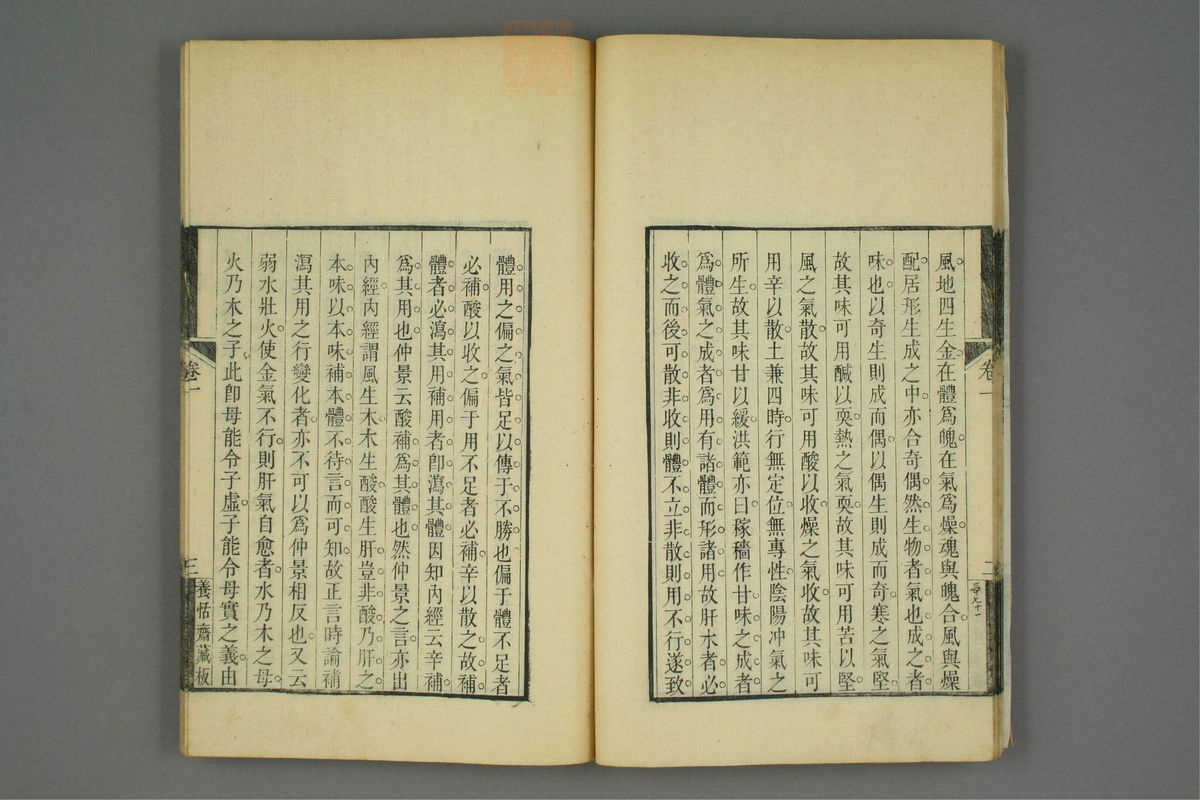 風地四生金在體爲魄在氣爲燥魂與魄合風與燥
配居形生成之中亦合奇偶然生物者氣也成之者
味也以奇生則成而偶以偶生則成而奇寒之氣堅
故其味可用醎以耎熱之氣耎故其味可用苦以堅
風之氣散故其味可用酸以收燥之氣收故其味可
用辛以散土兼四時行無定位無專性陰陽冲氣之
所生故其味甘以緩洪範亦曰稼穡作甘味之成者
爲體氣之成者爲用有諸體而形諸用故肝水者必
收之而後可散非收則體不立非散則用不行遂致
卷一
二
體用之偏之氣皆足以傳于不勝也偏于體不足者
必補酸以收之偏于用不足者必補辛以散之故補
體者必瀉其用補用者卽瀉其體因知內經云辛補
爲其用也仲景云酸補爲其體也然仲景之言亦出
內經內經謂風生木木生酸酸生肝豈非酸乃肝之
本味以本味補本體不待言而可知故正言時論補
瀉其用之行變化者亦不可以爲仲景相反也又云
弱水壯火使金氣不行則肝氣自愈者水乃木之母
火乃木之子此卽母能令子虛子能令母實之義由
卷一
三
養恬齋藏板